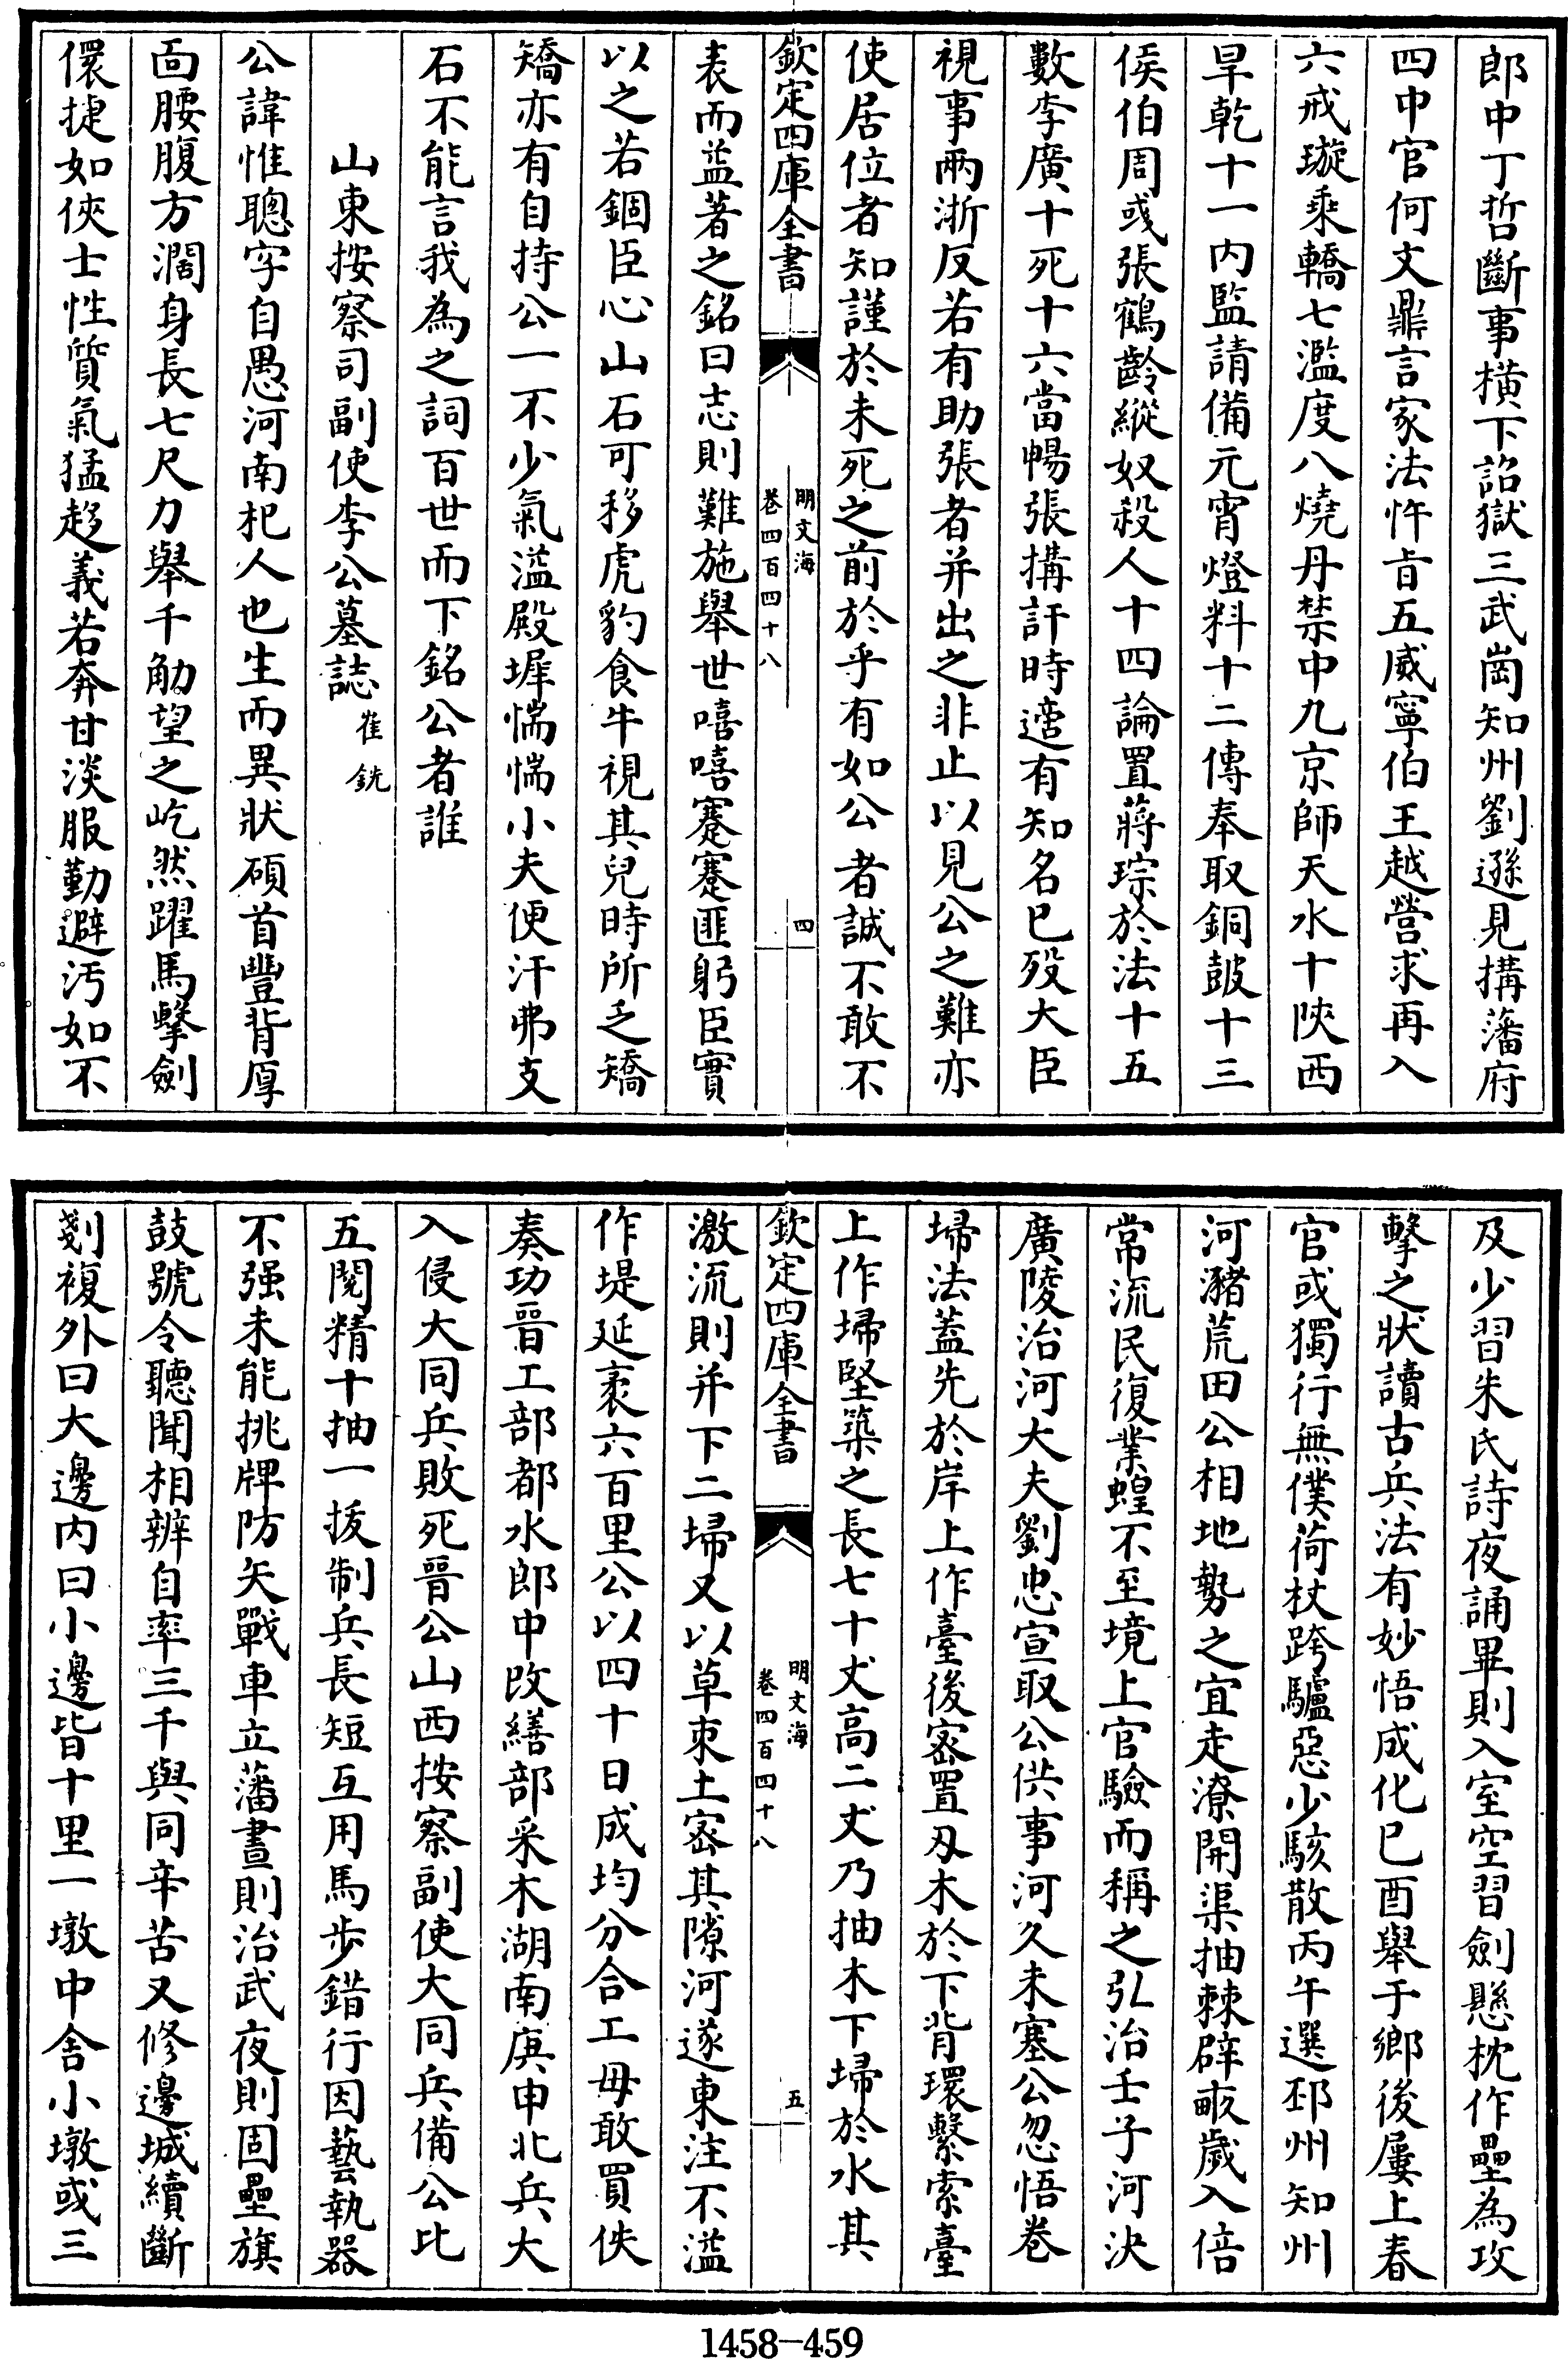 郎中丁哲斷事橫下詔獄三武岡知州劉遜見搆藩府
四中官何文鼎言家法忤旨五威寧伯王越營求再入
六戒璇乘轎七濫度八燒丹禁中九京師天水十陜西
旱乾十一内監請備元宵燈料十二傳奉取銅皷十三
侯伯周彧張鶴齡縱奴殺人十四論置蔣琮於法十五
數李廣十死十六當暢張搆訐時適有知名已歿大臣
視事兩浙反若有助張者并出之非止以見公之難亦
使居位者知謹於未死之前於乎有如公者誠不敢不
欽定四庫全書
明文海
卷四百四十八
四
表而益著之銘曰志則難施舉世嘻嘻蹇蹇匪躬臣實
以之若錮臣心山石可移虎豹食牛視其兒時所乏矯
矯亦有自持公一不少氣溢殿墀惴惴小夫便汗弗支
石不能言我為之詞百世而下銘公者誰
山東按察司副使李公墓誌 崔銑
公諱惟聰字自愚河南杞人也生而異狀碩首豐背厚
面腰腹方濶身長七尺力舉千觔望之屹然躍馬擊劍
儇捷如俠士性質氣猛趍義若奔甘淡服勤避汚如不
及少習朱氏詩夜誦畢則入室空習劍懸枕作壘為攻
擊之狀讀古兵法有妙悟成化已酉舉于鄉後屢上春
官或獨行無僕荷杖跨驢惡少駭散丙午選邳州知州
河瀦荒田公相地勢之宜走潦開渠抽棘辟畝歲入倍
常流民復業蝗不至境上官驗而稱之弘治壬子河決
廣陵治河大夫劉忠宣取公供事河久未塞公忽悟卷
埽法蓋先於岸上作臺後密置刄木於下背環繫索臺
上作埽堅築之長七十丈高二丈乃抽木下埽於水其
欽定四庫全書
明文海
卷四百四十八
五
激流則并下二埽又以草朿土密其隙河遂東注不溢
作堤延袤六百里公以四十日成均分合工毋敢買佚
奏功晉工部都水郎中改繕部采木湖南庚申北兵大
入侵大同兵敗死晉公山西按察副使大同兵備公比
五閱精十抽一拔制兵長短互用馬步錯行因藝執器
不强未能挑牌防矢戰車立藩晝則治武夜則固壘旗
鼓號令聽聞相辨自率三千與同辛苦又修邊城續斷
剗複外曰大邊内曰小邊皆十里一墩中舍小墩或三
1458-459